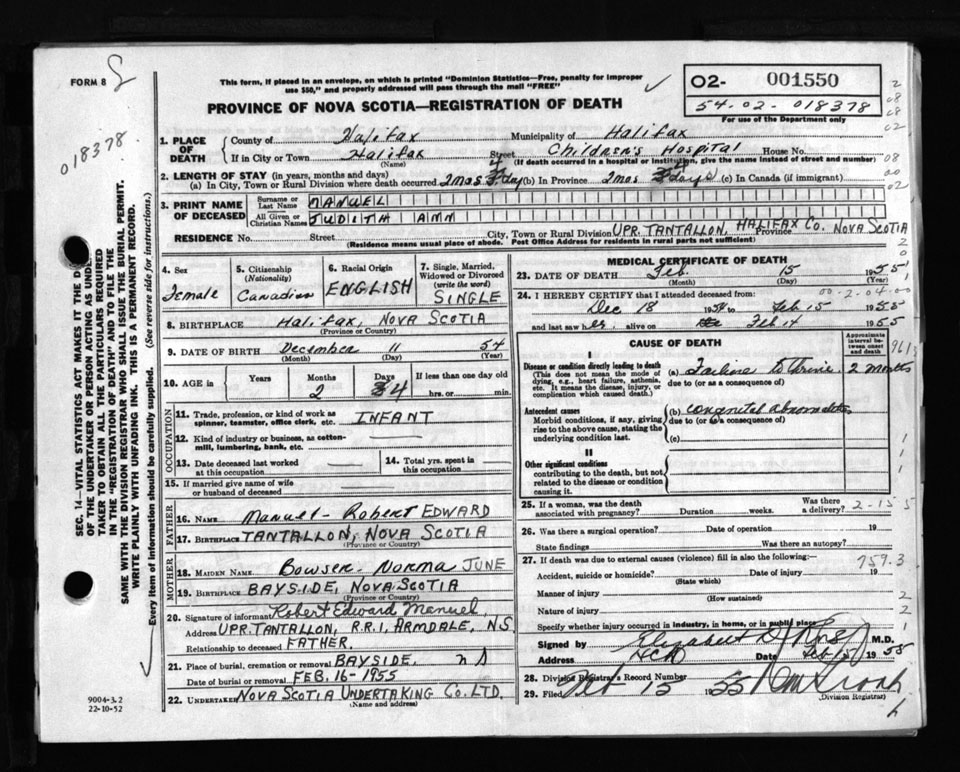 FORM 8
018378
This form, if placed in an envelope, on which is printed "Dominion Statistics—Free, penalty for improper
use $50," and properly addressed will pass through the mail "FREE"
PROVINCE OF NOVA SCOTIA—REGISTRATION OF DEATH
O2- 001550
54-02-018378
For use of the Department only
1. PLACE OF DEATH
County of Halifax Municipality of Halifax
If in City or Town Halifax Street Children's Hospital House No.
(Name) (If death occurred in a hospital or institution, give the name instead of street and number)
2. LENGTH OF STAY (in years, months and days)
(a) In City, Town or Rural Division where death occurred 2mos 4 day (b) In Province 2mos days (c) In Canada (if immigrant)
3. PRINT NAME OF DECEASED
Surname or Last Name MANUEL
All Given or Christian Names JUDITH ANN
RESIDENCE No. Street City, Town or Rural Division UPR. TANTALLON, HALIFAX CO. Province NOVA SCOTIA
(Residence means usual place of abode. Post Office Address for residents in rural parts not sufficient)
4. Sex Female
5. Citizenship (Nationality) Canadian
6. Racial Origin ENGLISH
7. Single, Married, Widowed or Divorced (write the word) SINGLE
8. BIRTHPLACE Halifax, NOVA SCOTIA
(Province or Country)
9. DATE OF BIRTH December 11 54
(Month) (Day) (Year)
10. AGE in Years Months 2 Days 4 If less than one day old hrs. or min.
OCCUPATION
11. Trade, profession, or kind of work as spinner, teamster, office clerk, etc. INFANT
12. Kind of industry or business, as cotton-mill, lumbering, bank, etc.
13. Date deceased last worked at this occupation
14. Total yrs. spent in this occupation
15. If married give name of wife or husband of deceased
FATHER
16. NAME Manuel - Robert EDWARD
17. BIRTHPLACE TANTALLON, NOVA SCOTIA
(Province or Country)
MOTHER
18. MAIDEN NAME Bowser - Norma JUNE
19. BIRTHPLACE BAYSIDE, NOVA SCOTIA
(Province or Country)
20. Signature of informant Robert Edward Manuel
Address UPR. TANTALLON, R.R.1, ARMDALE, N.S.
Relationship to deceased FATHER.
21. Place of burial, cremation or removal BAYSIDE. N S
Date of burial or removal FEB. 16-1955
22. UNDERTAKER NOVA SCOTIA UNDERTAKING CO. LTD.
(Name and address)
MEDICAL CERTIFICATE OF DEATH
23. DATE OF DEATH Feb. 15 1955
(Month) (Day)
24. I HEREBY CERTIFY that I attended deceased from: 00-2-04-00
Dec 18 1954 to Feb 15 1955
and last saw her alive on Feb 14 1955
CAUSE OF DEATH
Approximate interval between onset and death
I
Disease or condition directly leading to death
(This does not mean the mode of dying, e.g., heart failure, asthenia, etc. It means the disease, injury, or complication which caused death.)
(a) Failure to thrive 2 months
due to (or as a consequence of)
Antecedent causes
Morbid conditions, if any, giving rise to the above cause, stating the underlying condition last.
(b) congenital abnormalities
due to (or as a consequence of)
(c)
II
Other significant conditions
contributing to the death, but not related to the disease or condition causing it.
25. If a woman, was the death associated with pregnancy? Duration weeks. Was there a delivery?
2-15 5
26. Was there a surgical operation? Date of operation 19
State findings Was there an autopsy?
27. If death was due to external causes (violence) fill in also the following:—
759.3
Accident, suicide or homicide? Date of injury 19
(State which)
Manner of injury
(How sustained)
Nature of injury
Specify whether injury occurred in industry, in home, or in public place
Signed by Elizabeth M.D.
Address Date Feb 15 1955
28. Division Registrar's Record Number
29. Filed Feb 15 1955
(Division Registrar)
SEC. 14—VITAL STATISTICS ACT MAKES IT THE D
OF THE UNDERTAKER OR PERSON ACTING AS UNDER
TAKER TO OBTAIN ALL THE PARTICULARS REQUIRED
IN THE "REGISTRATION OF DEATH" AND TO FILE THE
SAME WITH THE DIVISION REGISTRAR WHO SHALL ISSUE THE BURIAL PERMIT.
WRITE PLAINLY WITH UNFADING INK. THIS IS A PERMANENT RECORD.
Every item of information should be carefully supplied. (See reverse side for instructions.)
9004-3.2
22-10-52